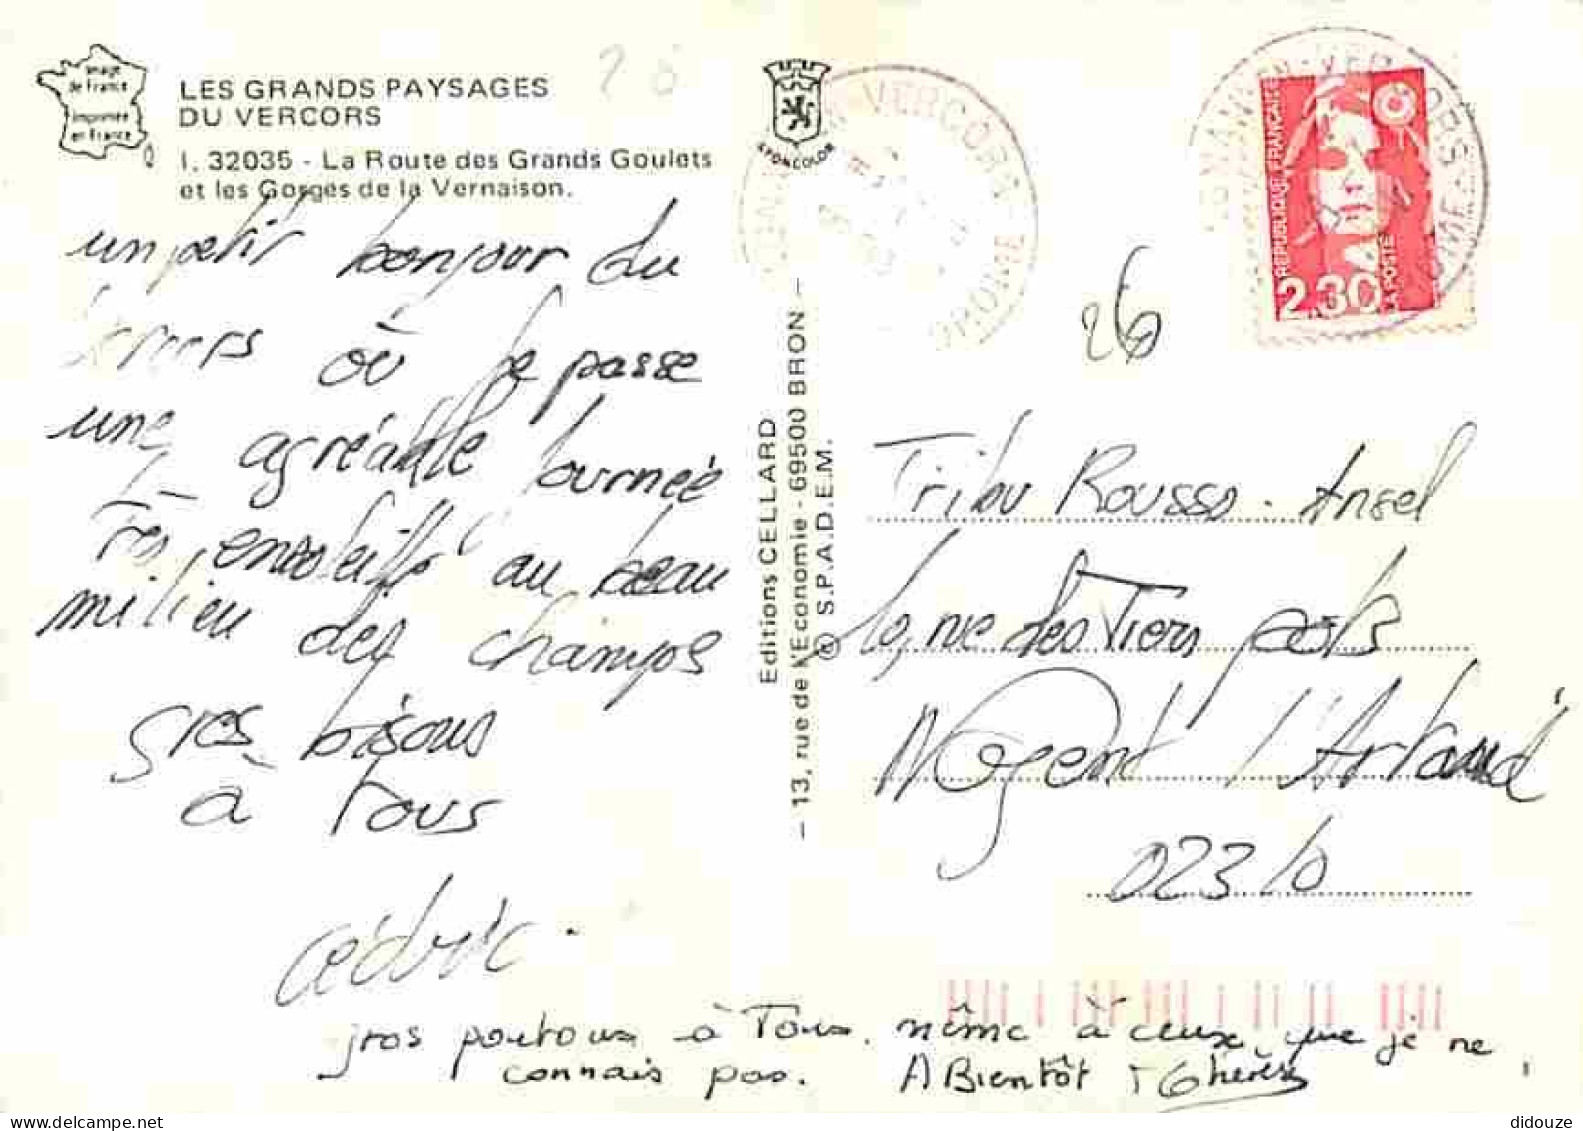 Image
de France
Imprimée
en France
LES GRANDS PAYSAGES
DU VERCORS
I. 32035 - La Route des Grands Goulets
et les Gorges de la Vernaison.
LYONCOLOR
un petit bonjour du
Vercors où je passe
une agréable journée
Très ensoleillé au beau
milieu des champs
gros bisous
à Tous
Cédric.
gros poutoux à Tous. même à ceux que je ne
connais pas. A Bientôt
Editions CELLARD
— 13, rue de l'Economie - 69500 BRON —
© S.P.A.D.E.M.
EN-VERCORS
DROME
REPUBLIQUE FRANÇAISE
2,30
LA POSTE
26
Tribu Rousso. Ansel
rue des Tiers pots
Nogent l'Artaud
02310
didouze